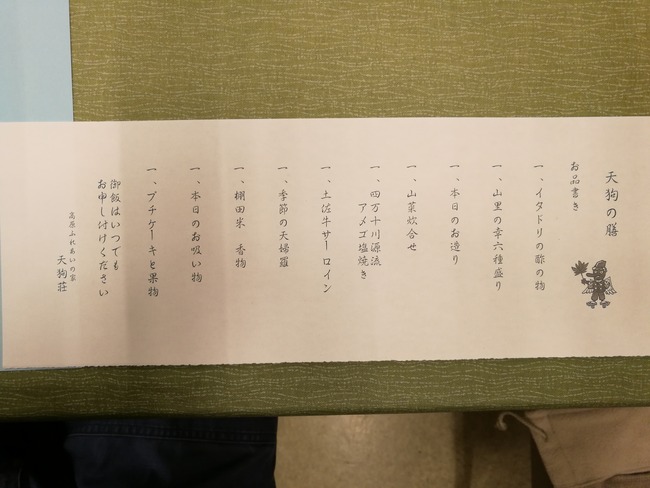 天狗の膳
お品書き
一、イタドリの酢の物
一、山里の幸六種盛り
一、本日のお造り
一、山菜炊合せ
一、四万十川源流
アメゴ塩焼き
一、土佐牛サーロイン
一、季節の天婦羅
一、棚田米　香物
一、本日のお吸い物
一、プチケーキと果物
御飯はいつでも
お申し付けください
高原ふれあいの家
天狗荘